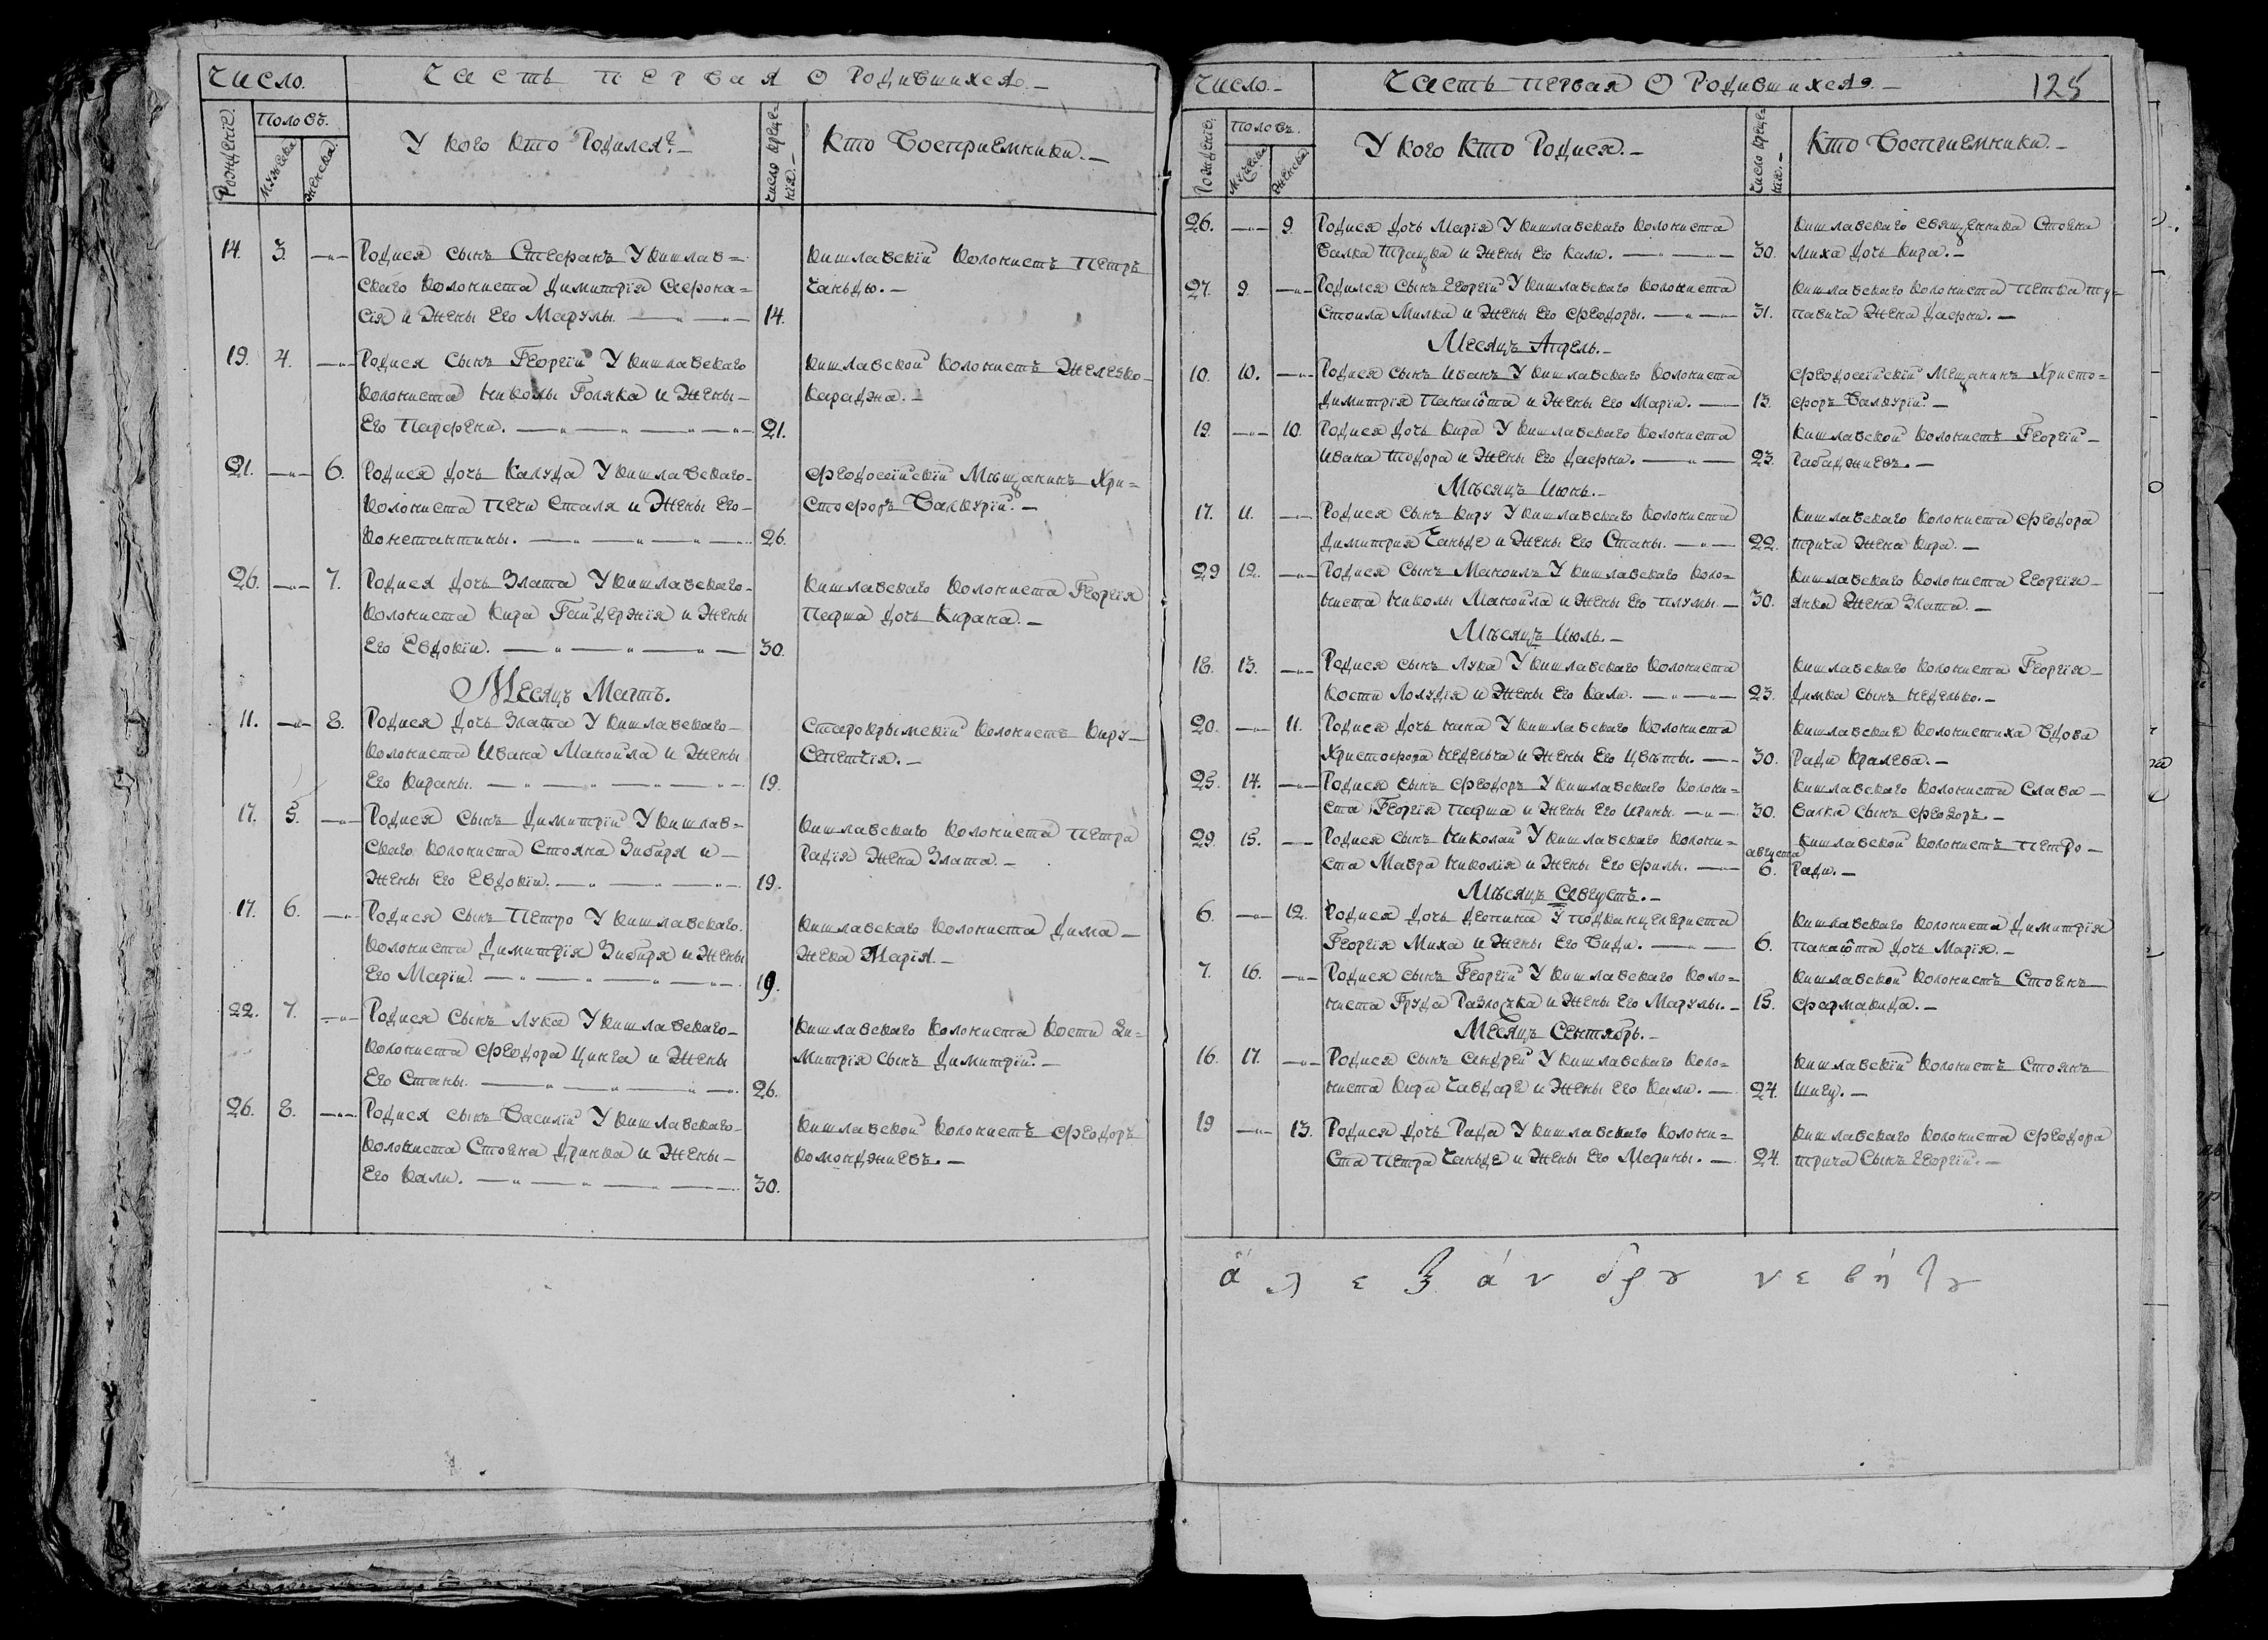 Число.
Часть первая о родившихся.—
Рождение.
Половъ.
Мужеска
Женска.
У кого кто родился?—
Число креще=
нія.—
Кто восприемники.—
14. 3. —„— Родися сынъ Стефанъ У кишлав=
скаго колониста Димитрія Афона=
сія и жены его Марулы. —„—„— 14.
Кишлавскій колонистъ Петръ
Чаньдо.—
19. 4. —„— Родися сынъ Георгій У кишлавскаго
колониста Николы Голяка и жены—
его Парфени. —„—„—„— 21.
Кишлавской колонистъ Железко—
Караджа.—
21. —„— 6. Родися дочь Калуда У кишлавскаго—
колониста Печи Сталя и жены его—
Константины. —„—„—„— 26.
Феодосійскій мѣщанинъ Хри=
стофоръ Валкурій.—
26. —„— 7. Родися дочь Злата У кишлавскаго—
колониста Кира Гайдержія и жены
его Евдокіи. —„—„—„— 30.
Кишлавскаго колониста Георгія
Парша дочь Кирана.—
Месяцъ Мартъ.
11. —„— 8. Родися дочь Злата У кишлавскаго—
колониста Ивана Манойла и жены
его Кираны. —„—„—„— 19.
Старокрымскій колонистъ Киру—
Сепетчія.—
17. 5. —„— Родися сынъ Димитрій У кишлав=
скаго колониста Стояна Зибаря и—
жены его Евдокіи. —„—„—„— 19.
Кишлавскаго колониста Петра
Радія жена Злата.—
17. 6. —„— Родися сынъ Петро У кишлавскаго.
колониста Димитрія Зибаря и жены
его Маріи. —„—„—„— 19.
Кишлавскаго колониста Дима—
жена Марія.—
22. 7. —„— Родися сынъ Лука У кишлавскаго—
колониста Феодора Цинга и жены
его Станы. —„—„—„— 26.
Кишлавскаго колониста Кости Ди=
митрія сынъ Димитрій.—
26. 8. —„— Родися сынъ Василій У кишлавскаго—
колониста Стояна Дринка и жены—
его Кали. —„—„—„— 30.
Кишлавской колонистъ Феодоръ
Комонджиевъ.—
Число.—
Часть первая о родившихся.—
125
Рождение.
Половъ.
Мужеска
Женска.
У кого кто родися.—
Число креще=
нія.—
Кто восприемники.—
26. —„— 9. Родися дочь Марія У кишлавскаго колониста
Валка Трацка и жены его Кали. —„— 30.
Кишлавскаго священника Стояна
Миха дочь Кира.—
27. 9. —„— Родился сынъ Георгій У кишлавскаго колониста
Стоила Милка и жены его Феодоры. —„— 31.
Кишлавскаго колониста Петка Ту=
павича жена Дафни.—
Месяцъ Апрель.—
10. 10. —„— Родися сынъ Иванъ У кишлавскаго колониста
Димитрія Панаіота и жены его Маріи. — 13.
Феодосійскій мещанинъ Христо=
форъ Валкурій.—
19. —„— 10. Родися дочь Кира У кишлавскаго колониста
Ивана Тодора и жены его Дафни. —„— 23.
Кишлавской колонистъ Георгій—
Рабаджиевъ.—
Мѣсяцъ Июнь.—
17. 11. —„— Родися сынъ Киру У кишлавскаго колониста
Димитрия Чаньде и жены его Станы. —„— 22.
Кишлавскаго колониста Феодора
Трича жена Кира.—
29 12. —„— Родися сынъ Маноилъ У кишлавскаго коло=
ниста Николы Манойла и жены его Плумы.— 30.
Кишлавскаго колониста Георгія—
Янка жена Злата.—
Мѣсяцъ Июль.—
18. 13. —„— Родися сынъ Лука У кишлавскаго колониста
Кости Лолудія и жены его Кали. —„—„— 23.
Кишлавскаго колониста Георгія—
Димка сынъ Неделько.—
20. —„— 11. Родися дочь Нина У кишлавскаго колониста
Христофора Недельча и жены его Цвѣты. —„— 30.
Кишлавская колонистиха вдова
Ради Кралева.—
25. 14. —„— Родися сынъ Феодоръ У кишлавскаго колони=
ста Георгія Парша и жены его Ирины —„— 30.
Кишлавскаго колониста Слава—
Валка сынъ Феодоръ.—
29. 15. —„— Родися сынъ Николай У кишлавскаго колони=
ста Мавра Николія и жены его Филы. —„— августа
6.
Кишлавской колонистъ Петро—
Ради.—
Мѣсяцъ Августъ.—
6. —„— 12. Родися дочь Деспина У подканцеляриста
Георгія Миха и жены его Види. —„— 6.
Кишлавскаго колониста Димитрія
Панаіота дочь Марія.—
7. 16. —„— Родися сынъ Георгій У кишлавскаго коло=
ниста Груда Разлочка и жены его Марулы.— 15.
Кишлавской колонистъ Стоянъ
Фармакида.—
Месяцъ Сентябрь.—
16. 17. —„— Родися сынъ Андрей У кишлавскаго коло=
ниста Кира Чавдаре и жены его Кали. — 24.
Кишлавскій колонистъ Стоянъ
Шигу.—
19 —„— 13. Родися дочь Рада У кишлавскаго колони=
ста Петра Чаньде и жены его Марины. — 24.
Кишлавскаго колониста Феодора
Трича сынъ Георгій.—
ἀ λ ε ξ ά ν δ ρ ȣ ν ε β ή λ ȣ